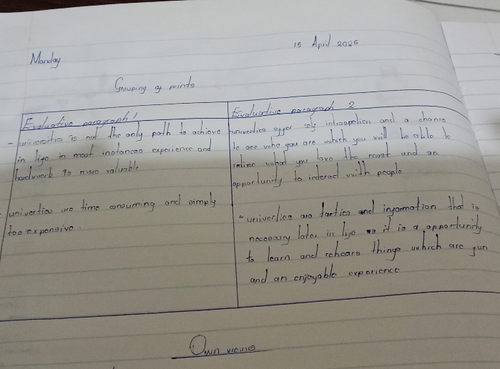 Monday
15 April 2025
Grouping of points
Evaluative paragraph 1
- universities is not the only path to achieve
in life in most instances experience and
hardwork is more valuable
- univerties are time consuming and simply
too expensive.
Evaluative paragraph 2
universities offer and a chance
to see who you are which you will be able to
what you love the most and an
opportunity to interact with people
- univerties are and information that is
necessary later in life as it is a opportunity
to learn and things which are fun
and an enjoyable experience
Own views